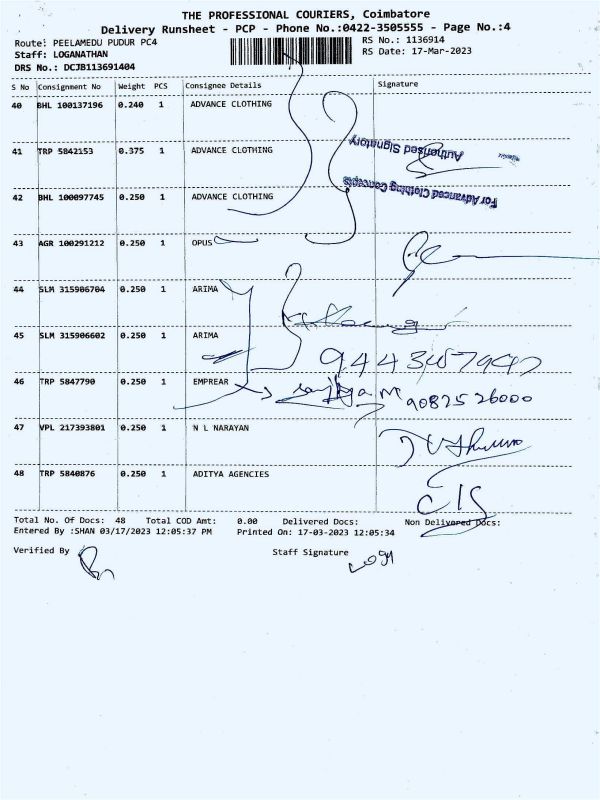 THE PROFESSIONAL COURIERS, Coimbatore
Delivery Runsheet - PCP - Phone No.:0422-3505555 - Page No.:4
Route: PEELAMEDU PUDUR PC4 RS No.: 1136914
Staff: LOGANATHAN RS Date: 17-Mar-2023
DRS No.: DCJB113691404
S No Consignment No Weight PCS Consignee Details Signature
40 BHL 100137196 0.240 1 ADVANCE CLOTHING
41 TRP 5842153 0.375 1 ADVANCE CLOTHING
Authorised Signatory
42 BHL 100097745 0.250 1 ADVANCE CLOTHING
For Advanced Clothing Concepts
43 AGR 100291212 0.250 1 OPUS
44 SLM 315906704 0.250 1 ARIMA
45 SLM 315906602 0.250 1 ARIMA
46 TRP 5847790 0.250 1 EMPREAR
9082526000
47 VPL 217393801 0.250 1 N L NARAYAN
48 TRP 5840876 0.250 1 ADITYA AGENCIES
Total No. Of Docs: 48 Total COD Amt: 0.00 Delivered Docs: Non Delivered Docs:
Entered By :SHAN 03/17/2023 12:05:37 PM Printed On: 17-03-2023 12:05:34
Verified By Staff Signature